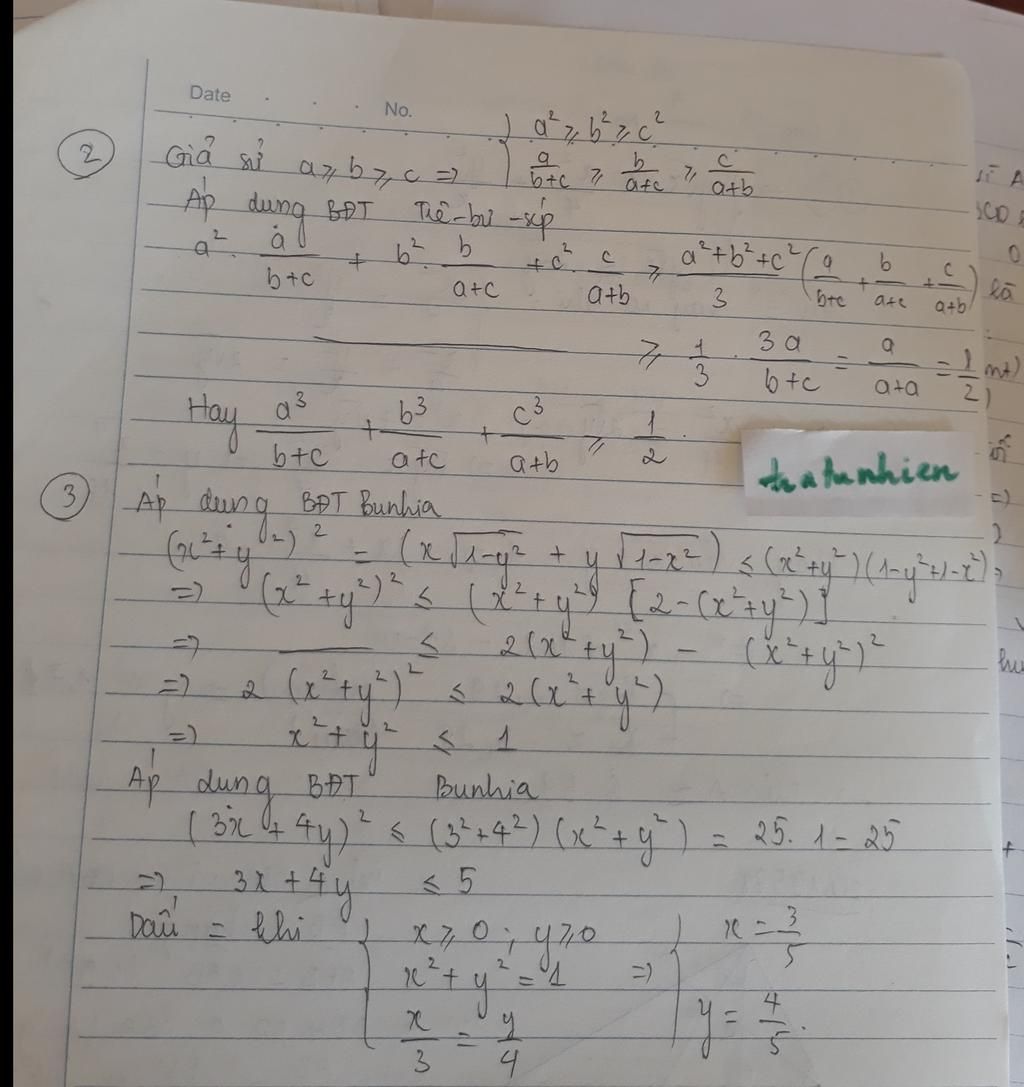 Date . . . No.
② Giả sử a ≥ b ≥ c => { a² ≥ b² ≥ c²
a/(b+c) ≥ b/(a+c) ≥ c/(a+b)
Áp dụng BĐT Trê-bư-sép
a² · a/(b+c) + b² · b/(a+c) + c² · c/(a+b) ≥ (a²+b²+c²)/3 (a/(b+c) + b/(a+c) + c/(a+b))
——— ≥ 1/3 · 3a/(b+c) = a/(a+a) = 1/2
Hay a³/(b+c) + b³/(a+c) + c³/(a+b) ≥ 1/2.
tratunhien
③ Áp dụng BĐT Bunhia
(x²+y²)² = (x√(1-y²) + y√(1-x²)) ≤ (x²+y²)(1-y²+1-x²)
=> (x²+y²)² ≤ (x²+y²) [2-(x²+y²)]
=> ——— ≤ 2(x²+y²) - (x²+y²)²
=> 2 (x²+y²)² ≤ 2(x²+y²)
=> x²+y² ≤ 1
Áp dụng BĐT Bunhia
(3x+4y)² ≤ (3²+4²)(x²+y²) = 25. 1 = 25
=> 3x+4y ≤ 5
Dấu = khi { x ≥ 0 ; y ≥ 0
x²+y² = 1
x/3 = y/4
=> { x = 3/5
y = 4/5.